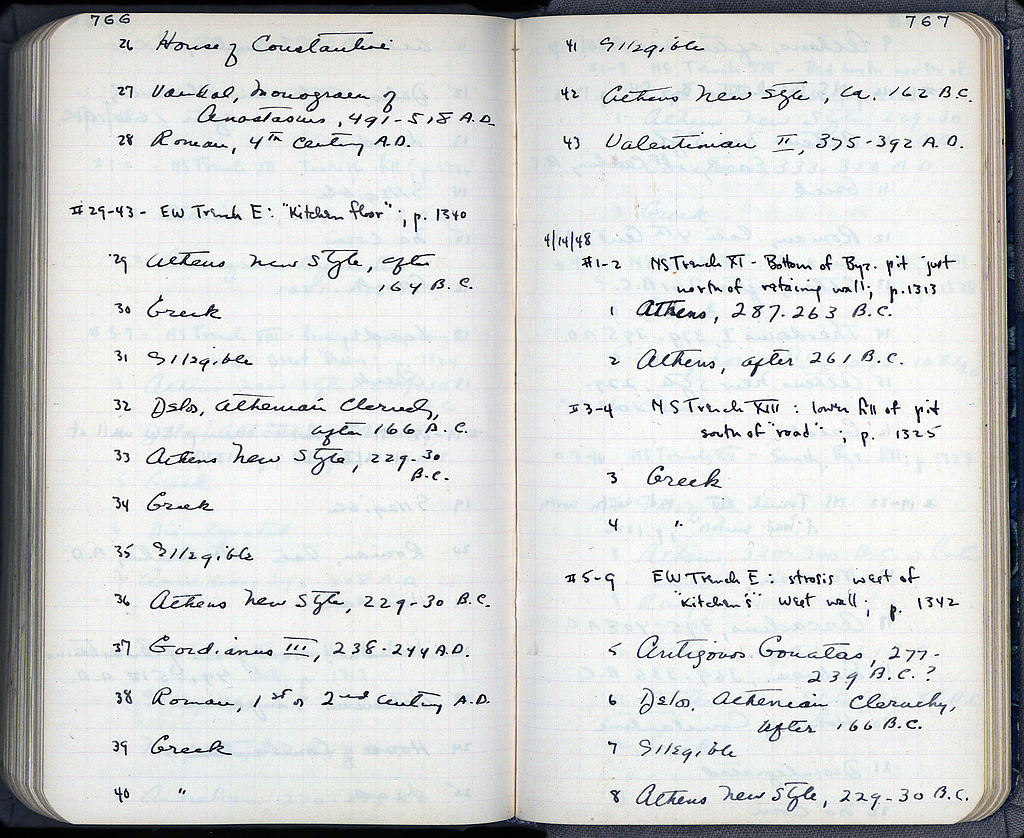 766
26 House of Constantine
27 Vandal, monogram of
Anastasius, 491-518 A.D.
28 Roman, 4th century A.D.
#29-43 - EW Trench E: "Kitchen floor"; p. 1340
29 Athens New Style, after
164 B.C.
30 Greek
31 Illegible
32 Delos, Athenian Cleruchy,
after 166 B.C.
33 Athens New Style, 229-30
B.C.
34 Greek
35 Illegible
36 Athens New Style, 229-30 B.C.
37 Gordianus III, 238-244 A.D.
38 Roman, 1st or 2nd century A.D.
39 Greek
40 "
767
41 Illegible
42 Athens New Style, ca. 162 B.C.
43 Valentinian II, 375-392 A.D.
4/14/48
#1-2 NS Trench XI - Bottom of Byz. pit just
north of retaining wall; p. 1313
1 Athens, 287-263 B.C.
2 Athens, after 261 B.C.
#3-4 NS Trench XIII: lower fill of pit
south of "road"; p. 1325
3 Greek
4 "
#5-9 EW Trench E: strosis west of
"Kitchen's" west wall; p. 1342
5 Antigonos Gonatas, 277-
239 B.C.?
6 Delos, Athenian Cleruchy,
after 166 B.C.
7 Illegible
8 Athens New Style, 229-30 B.C.